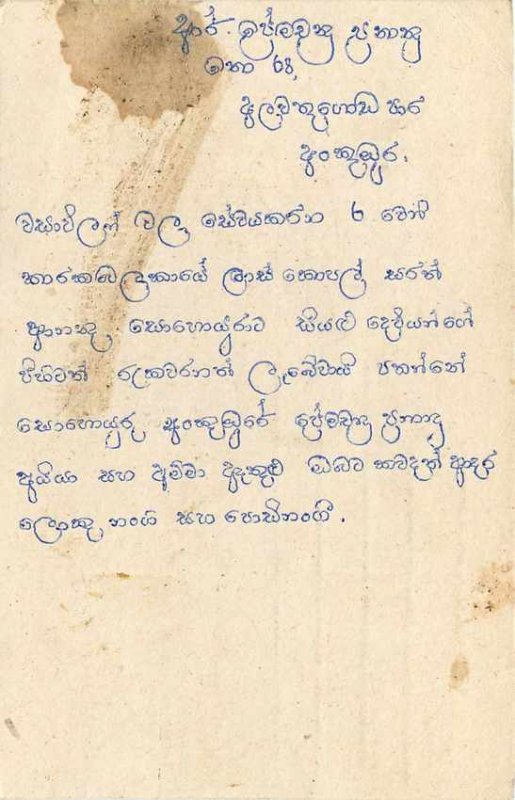 ආර්. ප්‍රේමචන්‍ද්‍ර ප්‍රනාන්‍දු
නො 68,
අලවතුගොඩ පාර
අංකුඹුර.
වසාවිලන් වල සේවයකරන 6 වෙනි
කාරකබලකායේ ලාස් කොපල් සරත්
ආනන්ද සොහොයුරාට සියළු දෙවියන්ගේ
පිහිටත් රැකවරනත් ලැබේවායි පතන්නේ
සොහොයුරු අංකුඹුරේ ප්‍රේමචන්‍ද්‍ර ප්‍රනාන්‍දු
අයියා සහ අම්මා ඇතුළු ඔබට කවදත් ආදර
ලොකු නංගි සහ පොඩිනංගී.